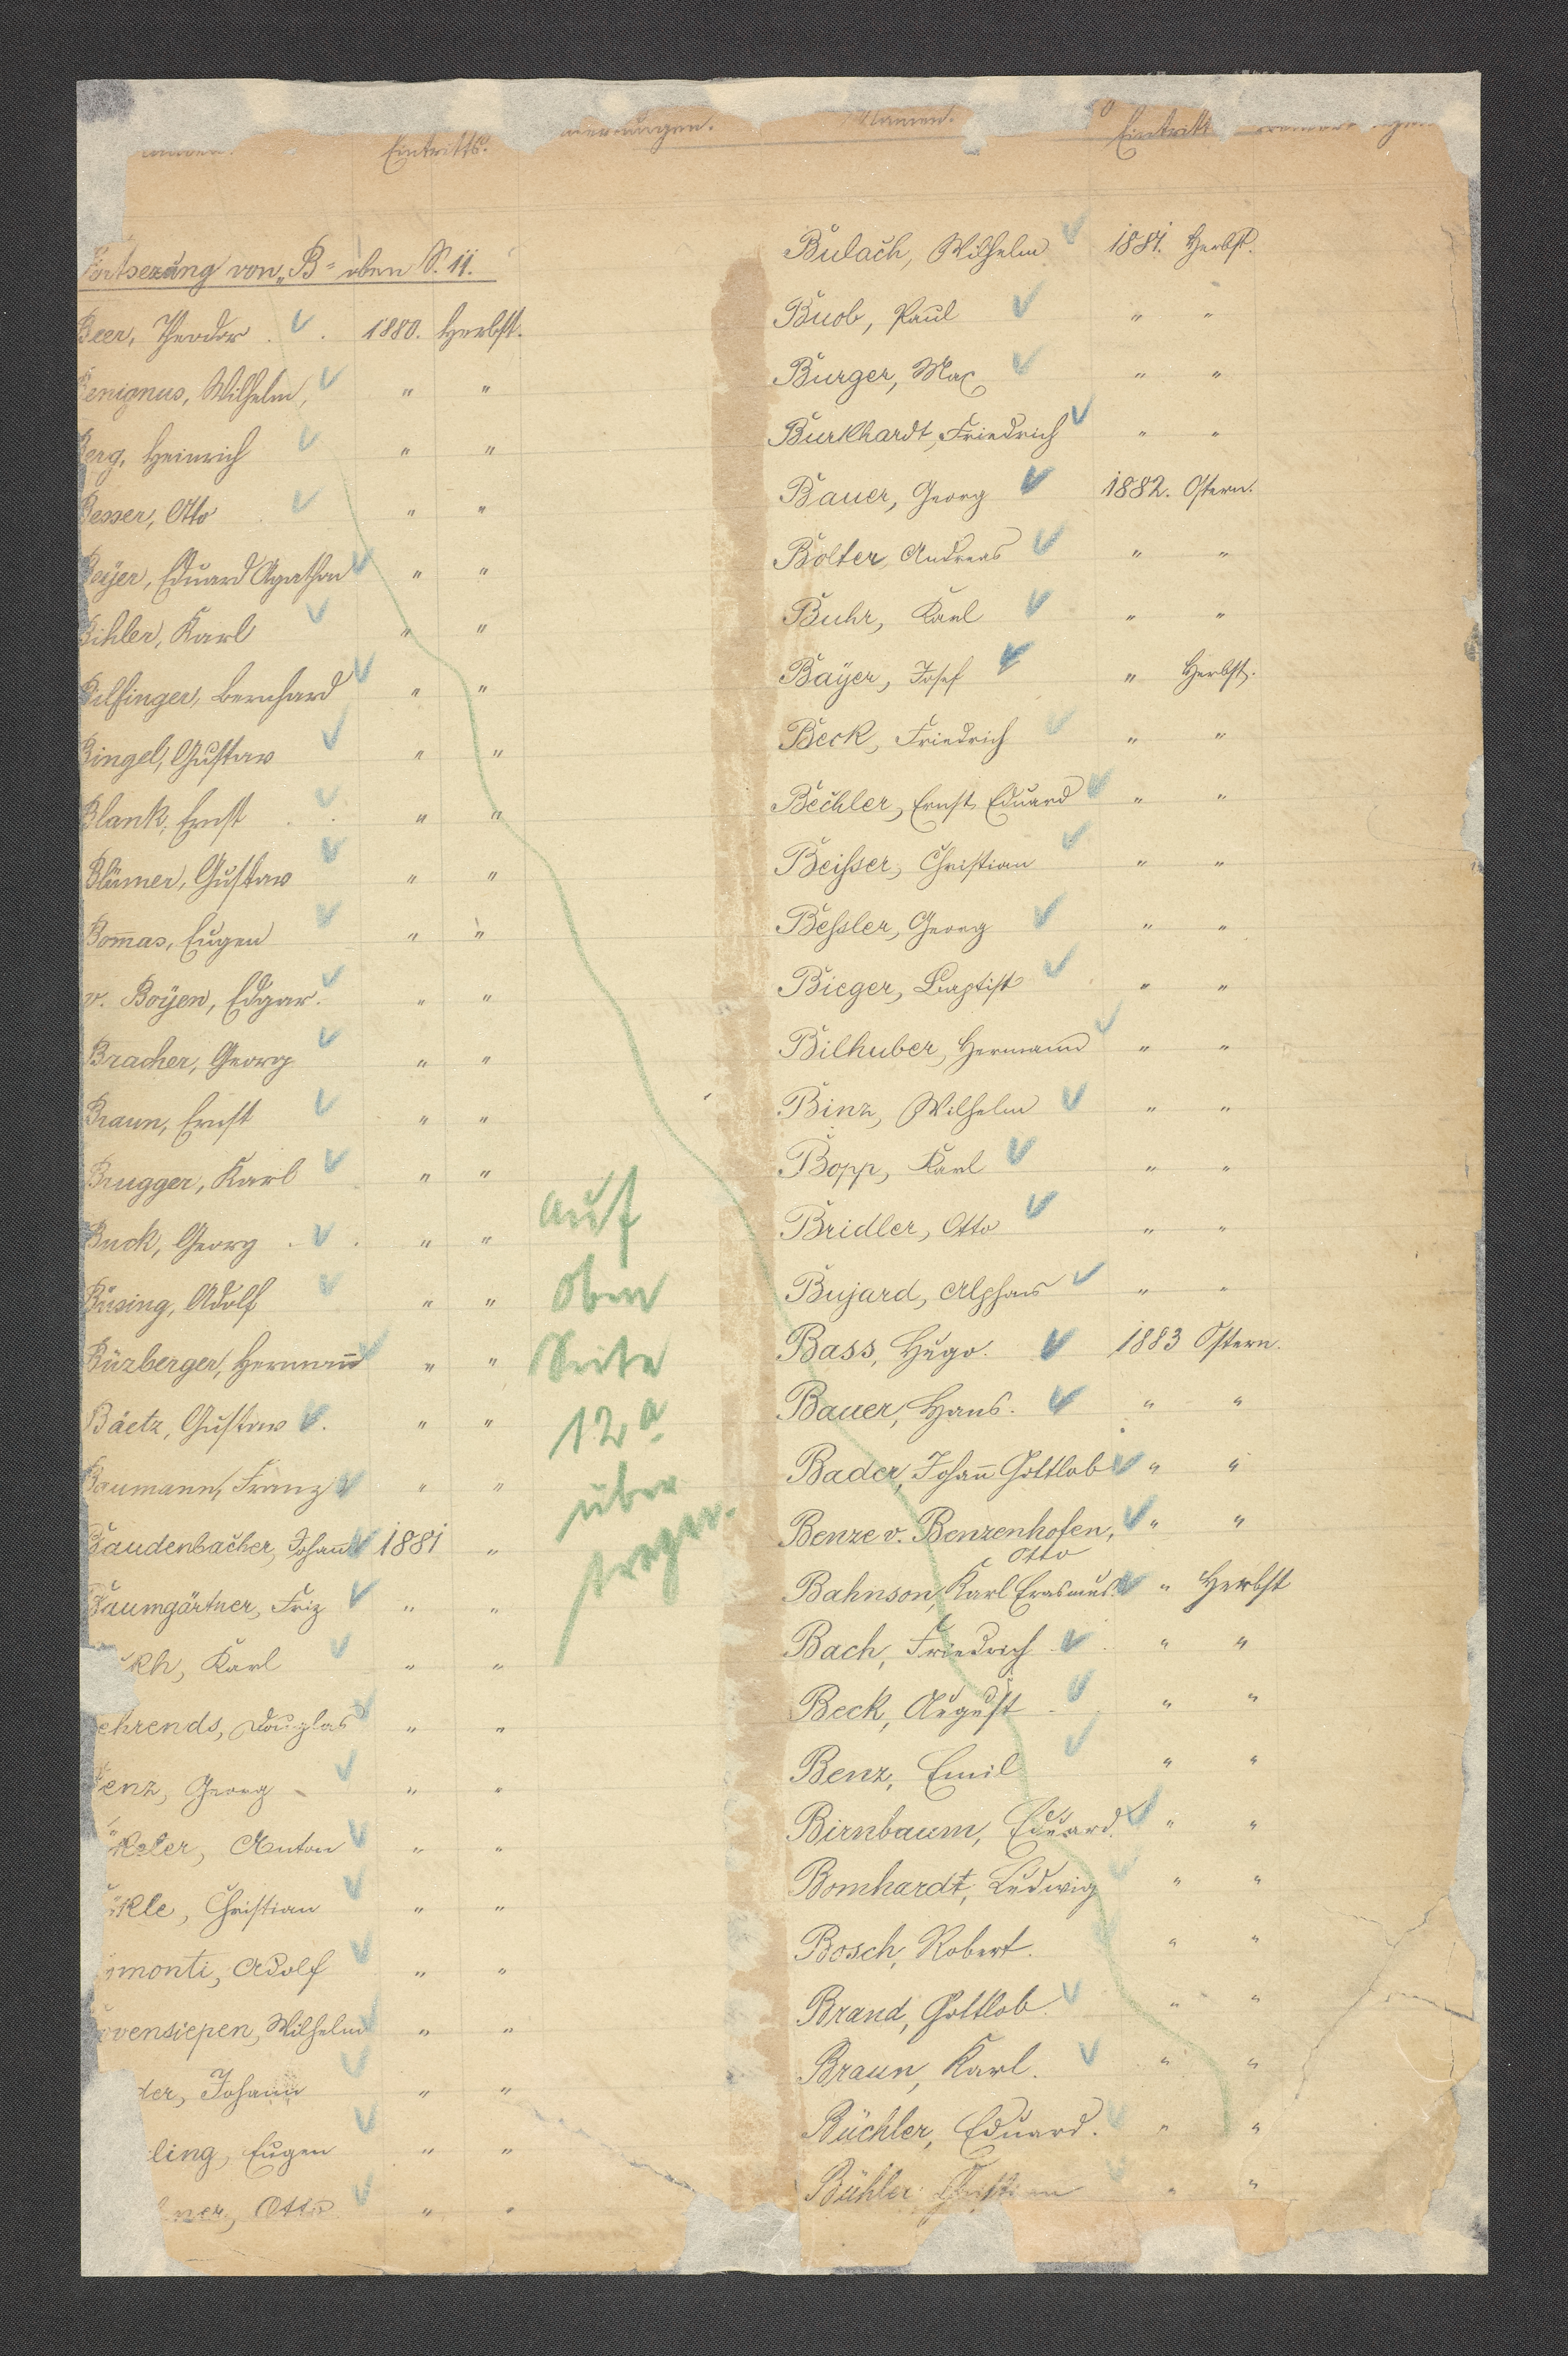 Eintritts.
Fortsezung von „B" oben S. 11.
Beer, Theodor 1880. Herbst.
Benignus, Wilhelm, " "
Berg, Heinrich " "
Besser, Otto " "
Beyer, Eduard Agathon " "
Bihler, Karl " "
Bilfinger, Bernhard " "
Bingel, Gustav " "
Blank, Ernst " "
Blümer, Gustav " "
Bom̄as, Eugen " "
v. Boÿen, Edgar. " "
Bracher, Georg " "
Braun, Ernst " "
Brugger, Karl " "
Buck, Georg " "
Büsing, Adolf " "
Büzberger, Herman̄ " "
Bäetz, Gustav " "
Baumann, Franz " "
Baudenbacher, Johann 1881 "
Baumgärtner, Friz " "
kh, Karl " "
ehrends, Douglas " "
Benz, Georg " "
Anton " "
kle, Christian " "
monti, Adolf " "
vensiepen, Wilhelm " "
der, Johann " "
ling, Eugen " "
ner, Otto " "
auf
oben
Seite
12a
über
tragen.
Namen. Eintritt
Bulach, Wilhelm 1881. Herbst.
Buob, Paul " "
Burger, Max " "
Burkhardt, Friedrich " "
Bauer, Georg 1882. Ostern.
Bolter, Andreas " "
Buhr, Karl " "
Baÿer, Josef " Herbst.
Beck, Friedrich " "
Bechler, Ernst Eduard " "
Beißer, Christian " "
Beßler, Georg " "
Bieger, Baptist " "
Bilhuber, Hermann " "
Binz, Wilhelm " "
Bopp, Karl " "
Bridler, Otto " "
Bujard, Alphons " "
Bass, Hugo. 1883 Ostern.
Bauer, Hans. " "
Bader, Johan̄ Gottlob " "
Benze v. Benzenhofen, " "
Otto
Bahnson, Karl Erasmus. " Herbst
Bach, Friedrich " "
Beck, August " "
Benz, Emil " "
Birnbaum, Eduard. " "
Bomhardt, Ludwig " "
Bosch, Robert. " "
Brand, Gottlob. " "
Braun, Karl. " "
Büchler, Eduard. " "
Bühler, Christian " "